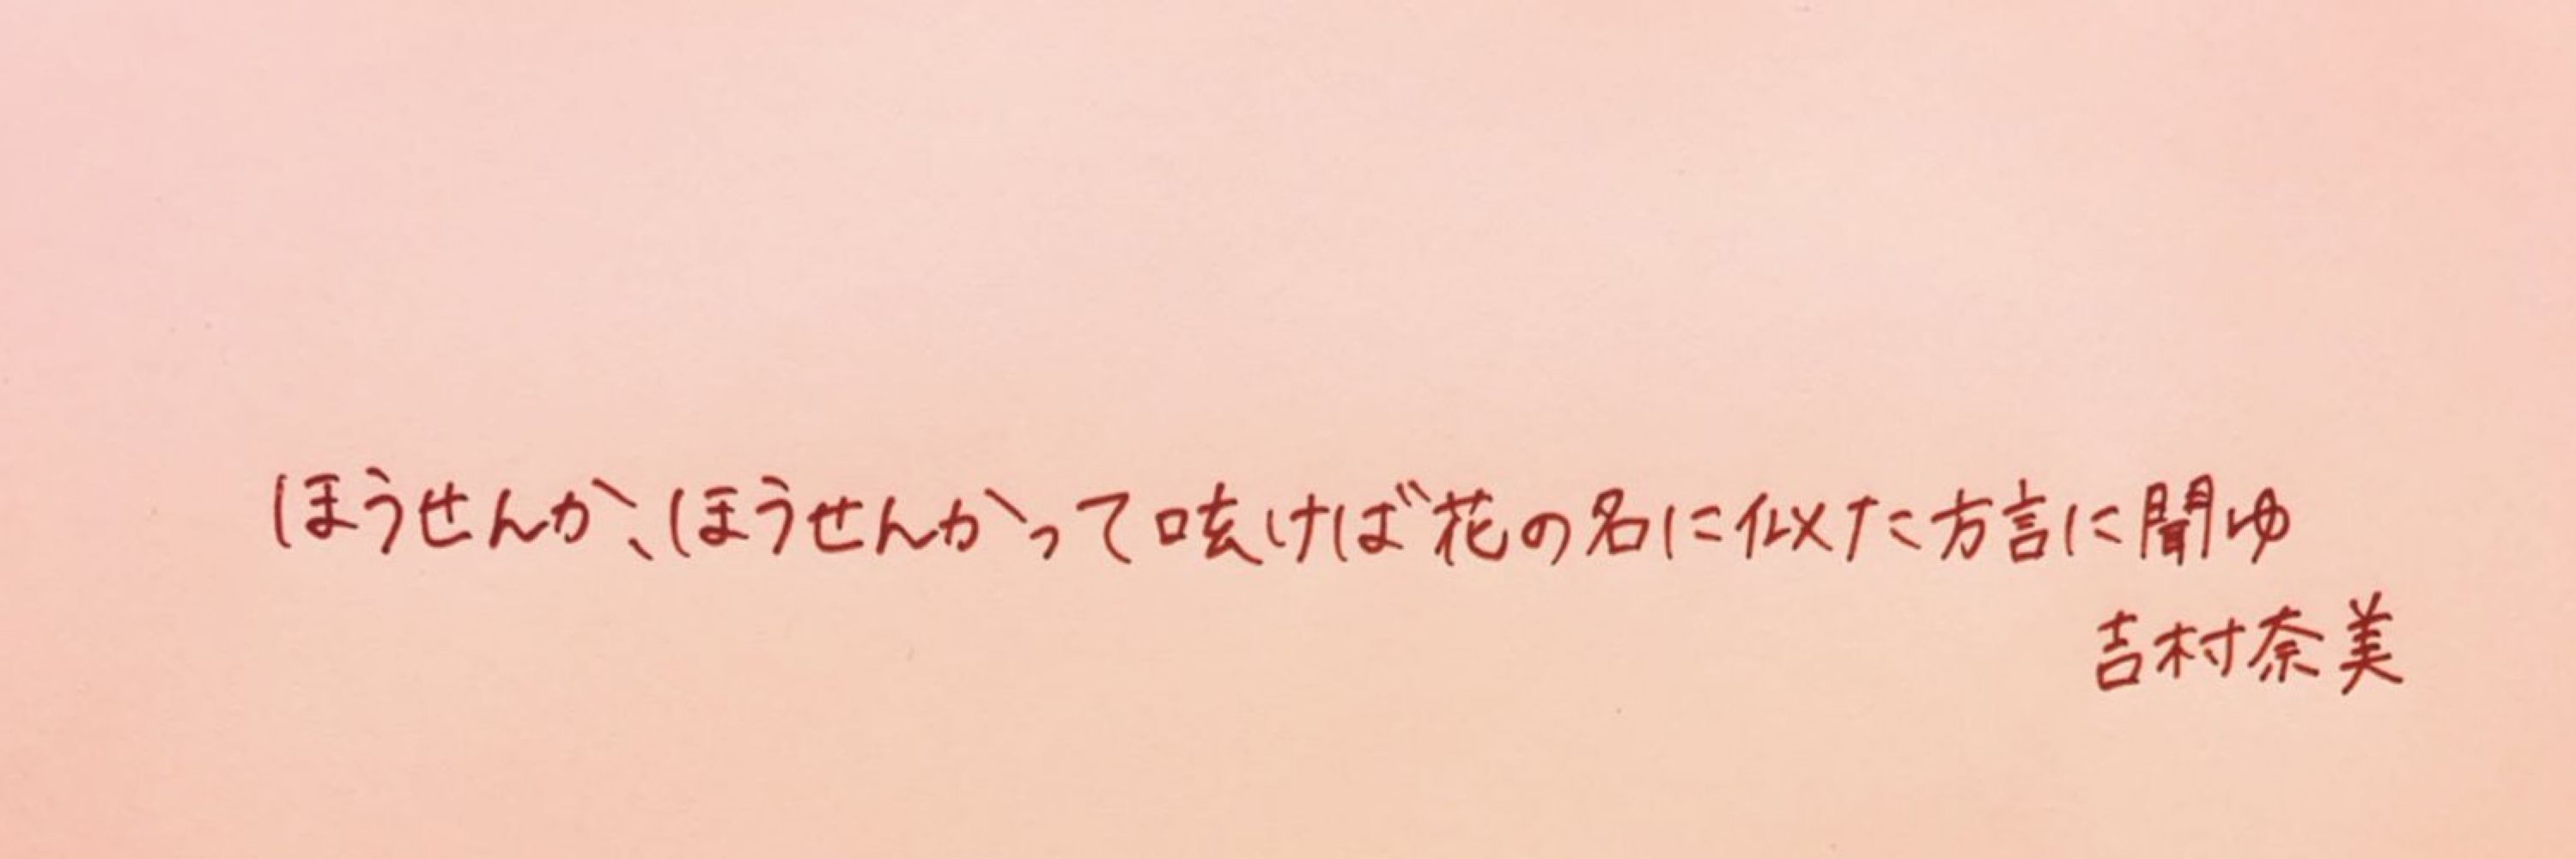 ほうせんか、ほうせんかって呟けば花の名に似た方言に聞ゆ
吉村奈美